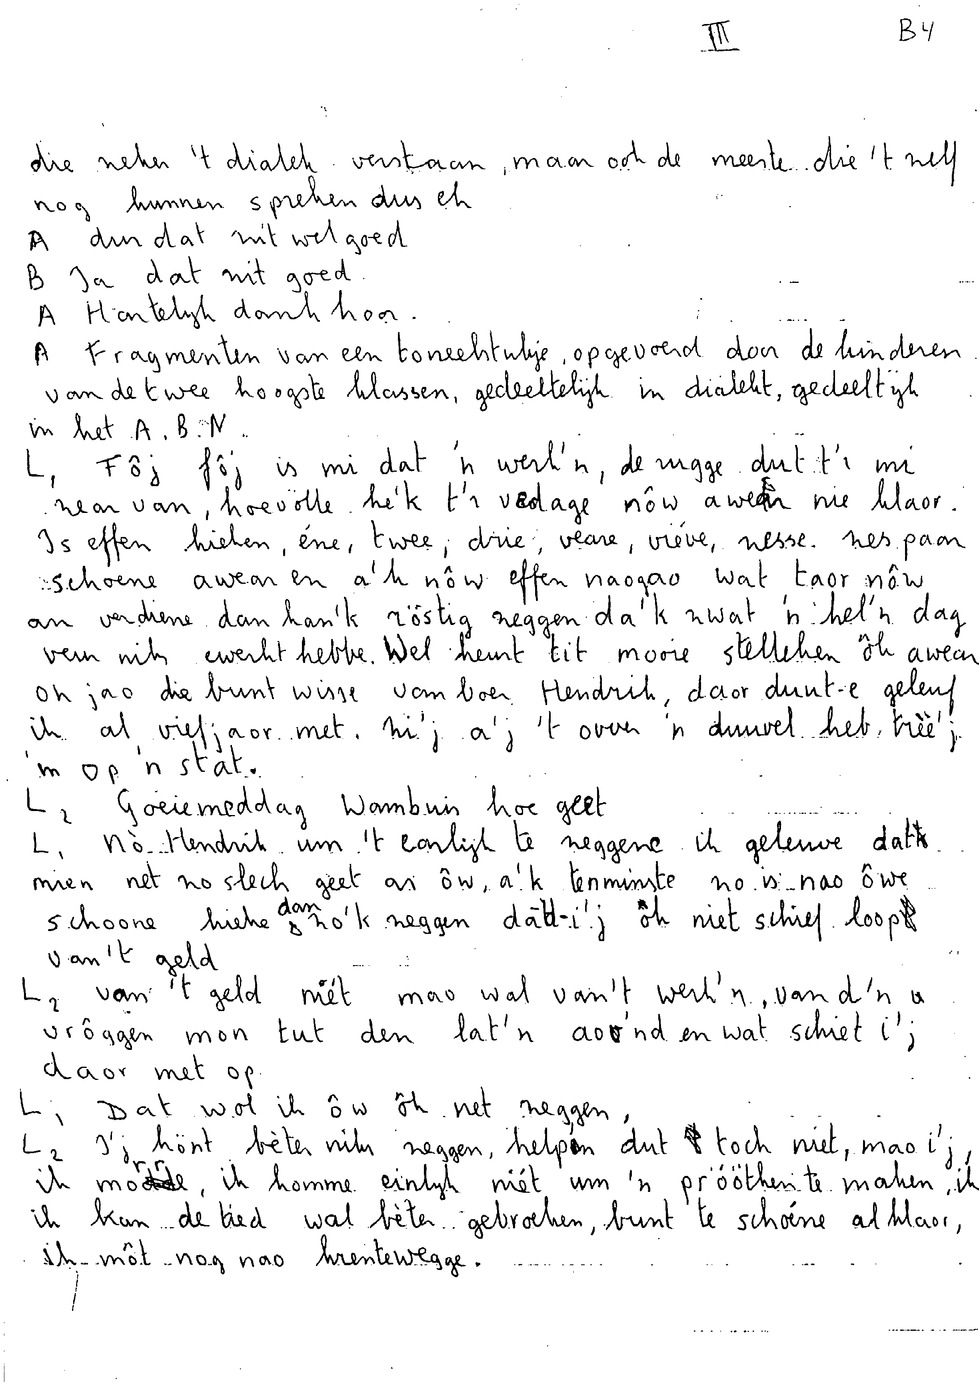 III B4
die zeker 't dialek verstaan, maar ook de meeste die 't zelf
nog kunnen spreken dus eh
A dus dat zit wel goed
B Ja dat zit goed.
A Hartelijk dank hoor.
A Fragmenten van een toneelstukje, opgevoerd door de kinderen
van de twee hoogste klassen, gedeeltelijk in dialekt, gedeeltijk
in het A.B.N.
L1 Fôj fôj is mi dat 'n werk'n, de rugge dut t'r mi
zear van, hoevölle he'k t'r vedage nôw awear nie klaor.
Is effen kieken, éne, twee, drie, veare, viéve, zesse. zes paar
schoene awear en a'k nôw effen naogao wat taor nôw
an verdiene dan kan'k röstig zeggen da'k zwat 'n hel'n dag
veur niks ewerkt hebbe. Wel heurt tit mooie stelleken ôk awear
oh jao die bunt wisse van boer Hendrik, daor dunt-e geleuf
ik al vief jaor met. hi'j a'j 't over 'n duuvel heb, trèè'j
'm op 'n stat.
L2 Goeiemeddag Wambuis hoe geet
L1 Nò Hendrik um 't earlijk te zeggene ik geleuve datt
mien net zo slech geet as ôw, a'k tenminste zo is nao ôwe
schoone kieke dan zo'k zeggen dàt-i'j ôk niet schief loopt
van't geld
L2 van 't geld niét mao wal van't werk'n, van d'n
vrôggen mon tut den lat'n aovnd en wat schiet i'j
daor met op
L1 Dat wol ik ôw ôk net zeggen,
L2 I'j könt bèter niks zeggen, helpen dut toch niet, mao i'j,
ik morre, ik komme einlijk niét um 'n prööthen te maken, ik
ik kan de tied wal bèter gebroeken, bunt te schoéne al klaor,
ik môt nog nao krentewegge.